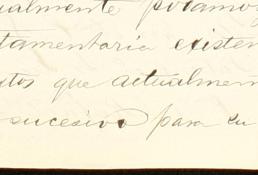 ualmente
tamentaria existen
tos que actualmen
sucesivo para su